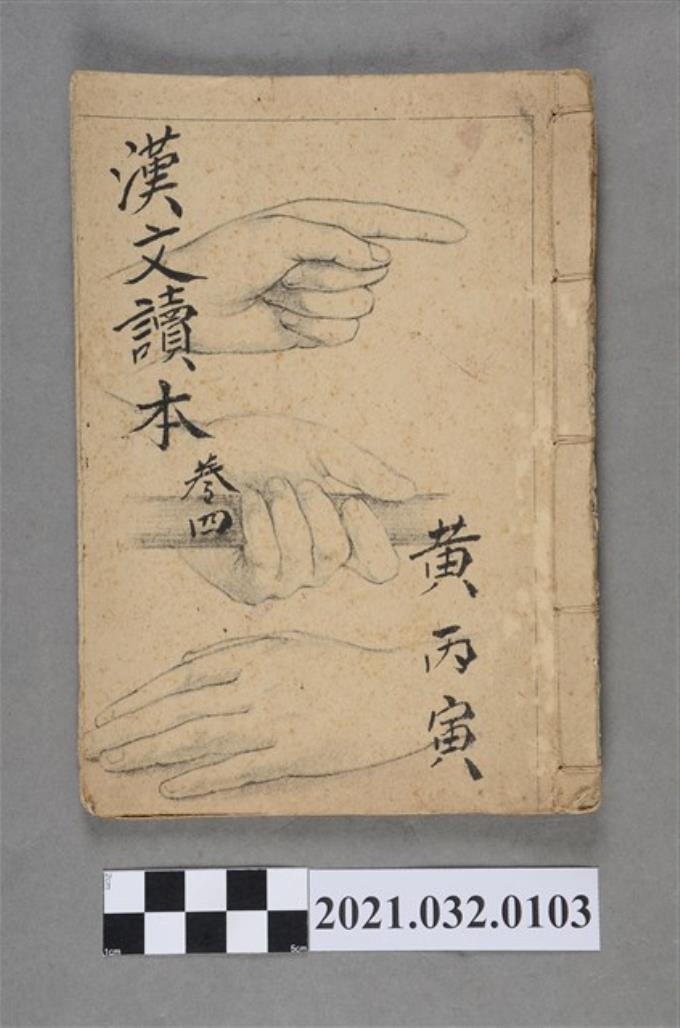 漢文讀本
卷四
黃丙寅
2cm
1cm
5cm
2021.032.0103